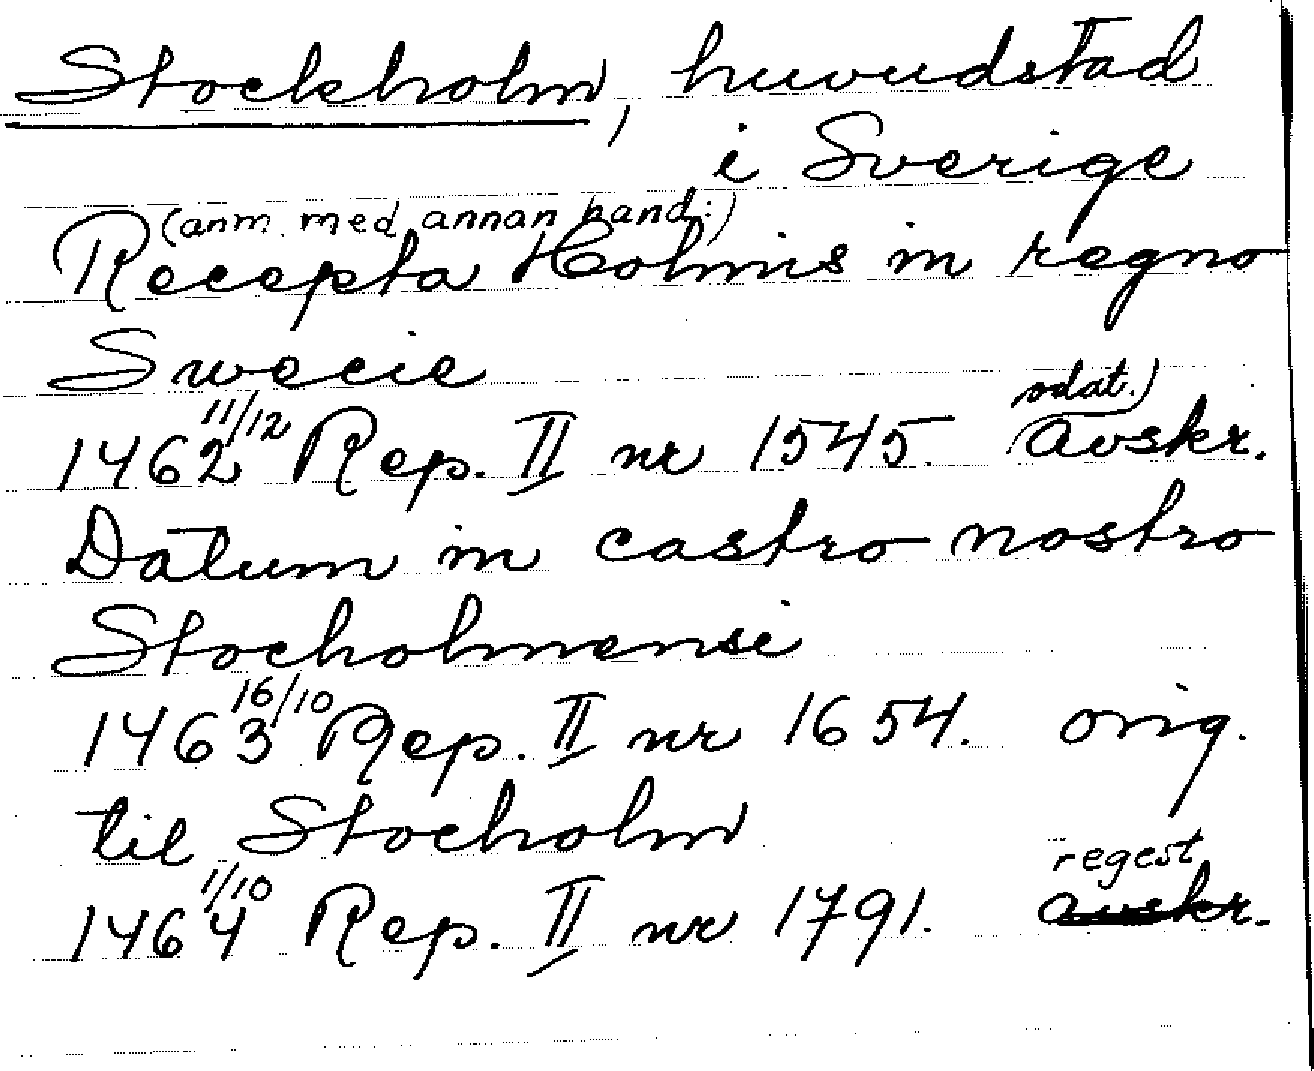 Stockholm, huvudstad
i Sverige
(anm. med annan hand:)
Recepta Holmis in regno
Swecie
1462 11/12 Rep. II nr 1545. (odat.) avskr.
Datum in castro nostro
Stocholmensi
1463 16/10 Rep. II nr 1654. orig.
til Stocholm
regest
1464 1/10 Rep. II nr 1791. avskr.